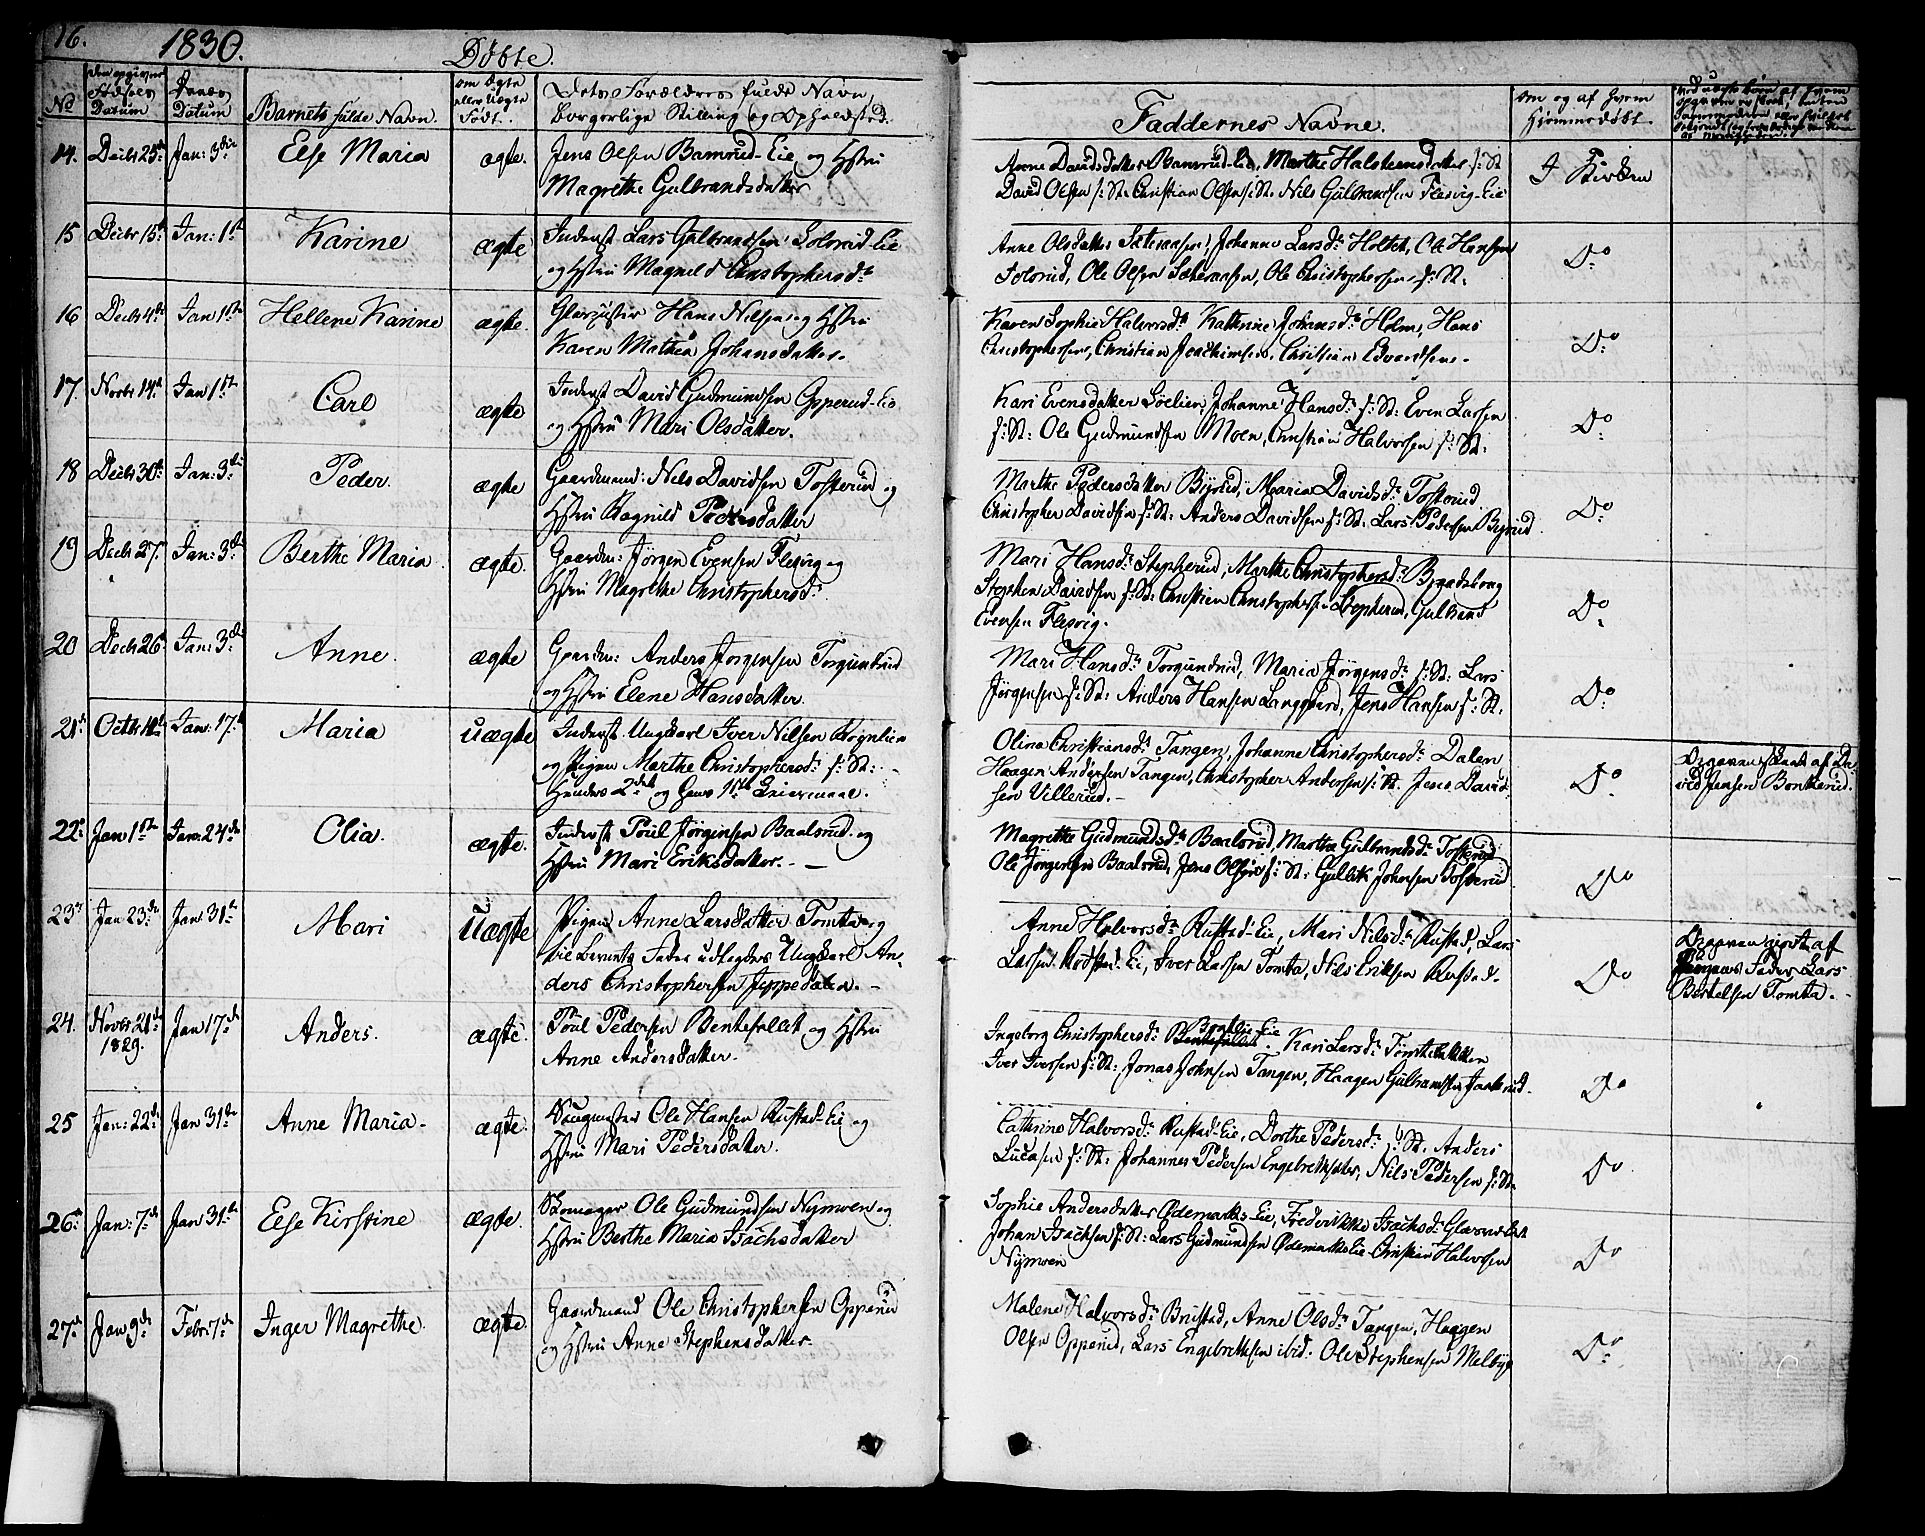 16. 1830. Døbte.
No
Datum
Daabs Datum
Barnets fulde Navn.
om Ægte eller Uægte Født.
Dets Forældres fulde Navn,
borgerlige Stilling og Opholdsted.
Faddernes Navne.
om og af hvem
Hjemmedøbt.
14. Decbr 25de Jan: 3die Else Maria ægte. Jens Olsen Bamrud-Eie og Hstru
Magrethe Gulbrandsdatter
Anne Davidsdatter Bamrud-Eie, Marthe Halsteensdatter s: St
David Olsen s: St: Christian Olsen s: St: Nils Gulbrandsen Flesvig-Eie
I Kirken
15 Decbr 15de Jan: 1ste Karine ægte Inderst Lars Gulbrandsen Solerud-Eie
og Hstru Magnild Christophersdr
Anne Olsdatter Sæteraasen, Johanne Larsdr Holtet, Ole Hansen
Solerud, Ole Olsen Sæteraasen, Ole Christophersen s: St.
Do
16 Decbr 4de Jan 1ste Hellene Karine ægte. Glarmester Hans Nilsen og Hstru
Karen Mathea Johansdatter.
Karen Sophie Halvorsdr Kathrine Johansdr Holm, Hans
Christophersen, Christian Joachimsen, Christian Edvardsen.
Do
17. Novbr 14de Jan 1ste Carl ægte Inderst David Gudmundsen Opperud-Eie
og Hstru Mari Olsdatter.
Kari Evensdatter Loelien, Johanne Hansdr s: St: Even Larsen
s: St: Ole Gudmundsen Moen, Christian Halvorsen s: St:
Do
18 Decbr 30te Jan: 3die Peder. ægte Gaardmand: Nils Davidsen Tosterud og
Hstru Ragnild Pedersdatter
Marthe Pedersdatter Byrud, Maria Davidsdr Tosterud
Christopher Davidsen s: St: Anders Davidsen s: St: Lars Pedersen Byrud
Do
19 Decbr 27. Jan: 3die Berthe Maria ægte. Gaardm: Jørgen Evensen Flesvig og
Hstru Magrethe Christophersdr
Mari Hansdr Stepherud, Marthe Christophersdr
Stephen Davidsen s: St: Christian Christophersen Stepherud, Gulbrand
Evensen Flesvig.
Do
20 Decbr 26 Jan: 3die Anne. ægte Gaardm: Anders Jørgensen Torgundrud
og Hstru Elene Hansdatter
Mari Hansdr Torgundrud, Maria Jørgensdr s: St: Lars
Jørgensen s: St: Anders Hansen Langgaard, Jens Hansen s: St.
Do
21de Octbr Jan: 17de Maria uægte Inderst Ungkarl Iver Nilsen
og Pigen Marthe Christophersdr s: St:
Hendes 2det og Hans 1ste Leiermaal.
Olina Christiansdr Tangen, Johanne Christophersdr Dalen
Haagen Andersen Tangen, Christopher Andersen s: St. Jens David-
sen Villerud.
Do
Opgaven skeet af Da-
vid Jensen Bonkerud.
22de Jan 1ste Jan: 24de Olia. ægte. Inderst Poul Jørgensen Baalsrud og
Hstru Mari Eriksdatter.
Magrethe Gudmundsdr Baalsrud, Marthe Gulbrandsdr Tosterud
Ole Jørgensen Baalsrud, Jens Olsen s: St: Gullik Johnsen Tosterud
Do
23de Jan 23de Jan 31te Mari Uægte Pigen Anne Larsdatter Tomta og
til Barnets Fader udlegges Ungkarl An-
ders Christophersen Jeppedalen.
Anne Halvorsdr Rustad-Eie, Mari Nilsdr Rustad, Lars
Larsen Rustad-Eie, Iver Larsen Tomta, Nils Eriksen Rustad.
Do
Opgaven gjort af
Pigens Fader Lars
Bertelsen Tomta.
24. Novbr 21de 1829. Jan 17de Anders. ægte. Poul Pedersen Bentefallet og Hstru
Anne Andersdatter.
Ingeborg Christophersdr Kari Larsdr
Iver Iversen s: St: Jonas Johnsen Tangen, Haagen Gulbrandsen
Do
25 Jan: 22de Jan 31te Anne Maria ægte. Ole Hansen Rustad-Eie og
Hstru Mari Pedersdatter.
Cathrine Halvorsdr Rustad-Eie, Dorthe Pedersdr s: St. Anders
Lucasen s: St: Johannes Pedersen Engebretsæter, Nils Pedersen s: St.
Do
26de Jan: 7de Jan 31te Else Kirstine ægte. Skomager Ole Gudmundsen Nymoen og
Hstru Berthe Maria Isachsdatter
Sophie Andersdatter Ødemarks-Eie, Frederikke Isachsdr
Johan Isachsen s: St: Lars Gudmundsen Ødemarks Eie Christian Halvorsen
Nymoen
Do
27de Jan 9de Febr 7de Inger Magrethe. ægte. Gaardmand Ole Christophersen Opperud
og Hstru Anne Stephensdatter.
Malene Halvorsdr Brustad, Anne Olsdr Tangen, Haagen
Olsen Opperud, Lars Engebretsen ibid: Ole Stephensen Melbye
Do